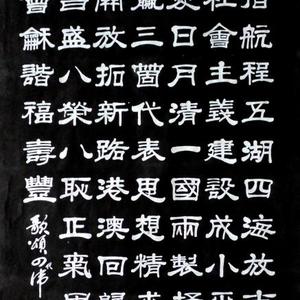 指航程五湖四海放
社會主義建設成小
日月清一國兩製
三箇代表思想精
開放拓新路港澳回
昌盛八榮八恥正氣
會龢諧福壽豐
歌頌四偉